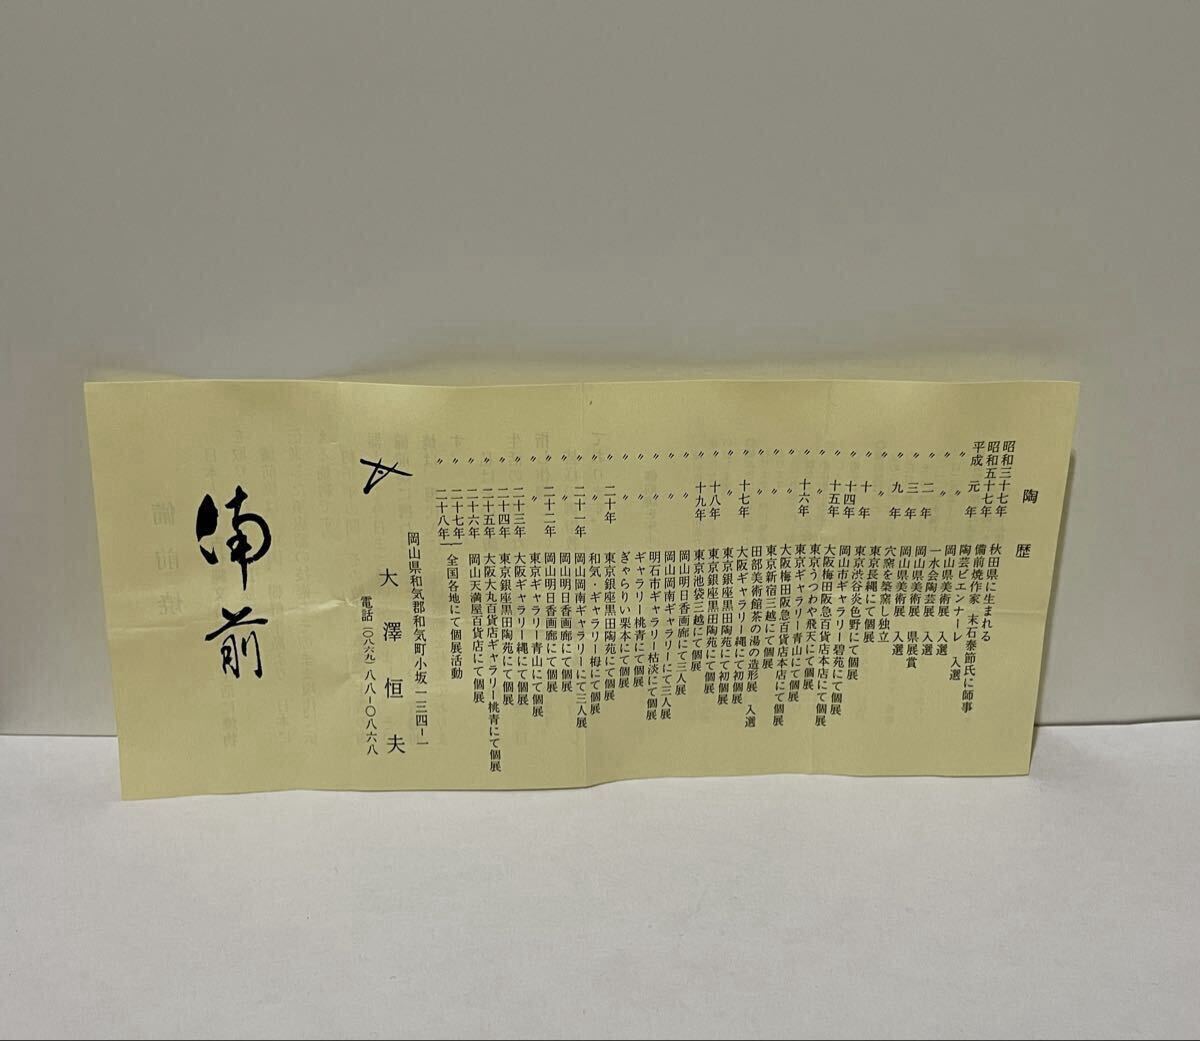 陶歴
昭和三十七年 秋田県に生まれる
昭和五十七年 備前焼作家 末石泰節氏に師事
平成 元年 陶芸ビエンナーレ 入選
〃 〃 岡山県美術展 入選
〃 二年 一水会陶芸展 入選
〃 三年 岡山県美術展 県展賞
〃 九年 岡山県美術展 入選
〃 〃 穴窯を築窯し独立
〃 十年 東京長縄にて個展
〃 〃 東京渋谷炎色野にて個展
〃 十四年 岡山市ギャラリー碧苑にて個展
〃 十五年 大阪梅田阪急百貨店本店にて個展
〃 〃 東京うつわや飛天にて個展
〃 十六年 東京ギャラリー青山にて個展
〃 〃 大阪梅田阪急百貨店本店にて個展
〃 〃 東京新宿三越にて個展
〃 〃 田部美術館茶の湯の造形展 入選
〃 十七年 大阪ギャラリー縄にて初個展
〃 〃 東京銀座黒田陶苑にて初個展
〃 十八年 東京銀座黒田陶苑にて個展
〃 十九年 東京池袋三越にて個展
〃 〃 岡山明日香画廊にて三人展
〃 〃 岡山岡南ギャラリーにて三人展
〃 〃 明石市ギャラリー枯淡にて個展
〃 〃 ギャラリー桃青にて個展
〃 〃 ぎゃらりい栗本にて個展
〃 二十年 東京銀座黒田陶苑にて個展
〃 〃 和気・ギャラリー栂にて個展
〃 二十一年 岡山岡南ギャラリーにて三人展
〃 〃 岡山明日香画廊にて個展
〃 二十二年 岡山明日香画廊にて個展
〃 〃 東京ギャラリー青山にて個展
〃 二十三年 大阪ギャラリー縄にて個展
〃 二十四年 東京銀座黒田陶苑にて個展
〃 二十五年 大阪大丸百貨店ギャラリー桃青にて個展
〃 二十六年 岡山天満屋百貨店にて個展
〃 二十七年 全国各地にて個展活動
〃 二十八年
岡山県和気郡和気町小坂一三四-一
大澤恒夫
電話(〇八六九)八八-〇八六八
備前